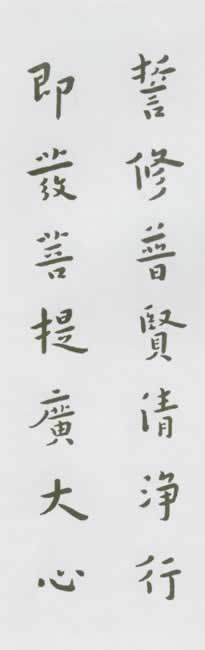 誓修普賢清淨行
即發菩提廣大心